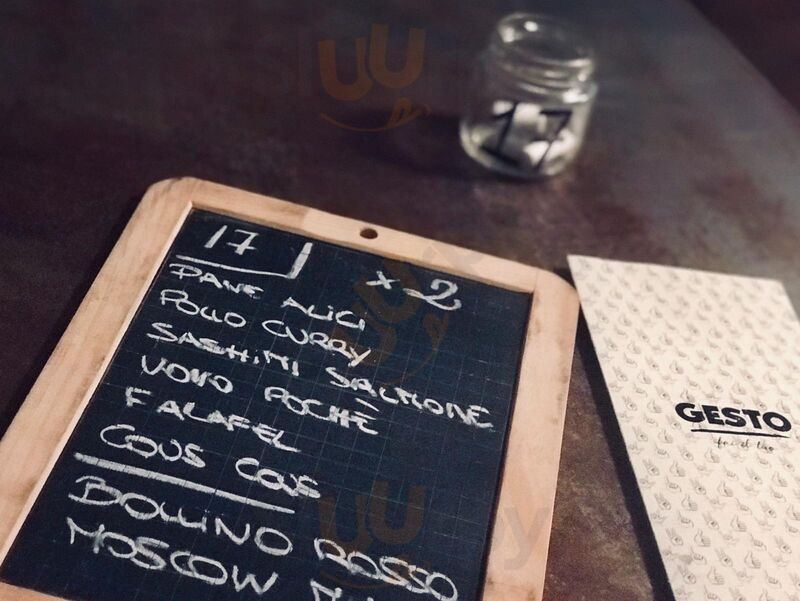 17
17
x2
PANE ALICI
POLLO CURRY
SASHIMI SALMONE
UOVO POCHÈ
FALAFEL
COUS COUS
BOLLINO ROSSO
MOSCOW
GESTO
fai il tuo